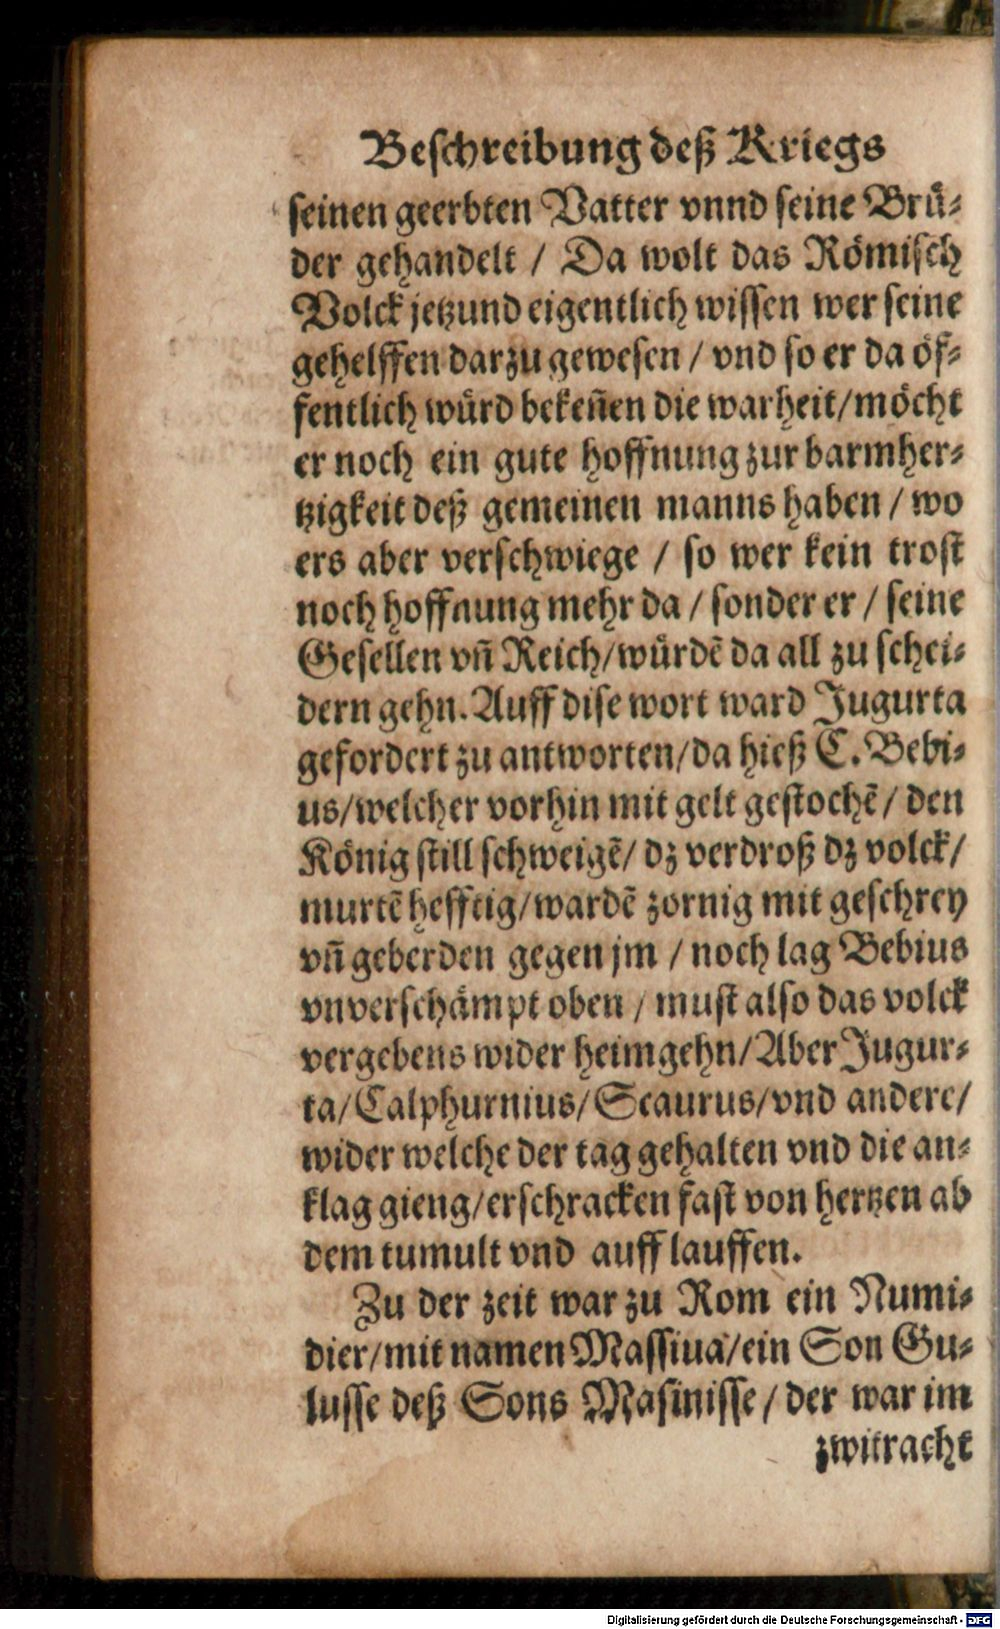 Beschreibung deß Kriegs
seinen geerbten Vatter vnnd seine Bruͤ-
der gehandelt / Da wolt das Roͤmisch
Volck jetzund eigentlich wissen wer seine
gehelffen darzu gewesen / vnd so er da oͤf-
fentlich wuͤrd bekeñen die warheit/moͤcht
er noch ein gute hoffnung zur barmher-
tzigkeit deß gemeinen manns haben / wo
ers aber verschwiege / so wer kein trost
noch hoffnung mehr da / sonder er / seine
Gesellen vñ Reich/wuͤrdẽ da all zu schei-
dern gehn. Auff dise wort ward Jugurta
gefordert zu antworten/da hieß C. Bebi-
us/welcher vorhin mit gelt gestochẽ/ den
Koͤnig still schweigẽ/ dz verdroß dz volck/
murtẽ hefftig/wardẽ zornig mit geschrey
vñ geberden gegen jm / noch lag Bebius
vnverschaͤmpt oben / must also das volck
vergebens wider heimgehn/Aber Jugur-
ta/Calphurnius/Scaurus/vnd andere/
wider welche der tag gehalten vnd die an-
klag gieng/erschracken fast von hertzen ab
dem tumult vnd auff lauffen.
Zu der zeit war zu Rom ein Numi-
dier/mit namen Massiua/ein Son Gu-
lusse deß Sons Masinisse / der war im
zwitracht
Digitalisierung gefördert durch die Deutsche Forschungsgemeinschaft - DFG